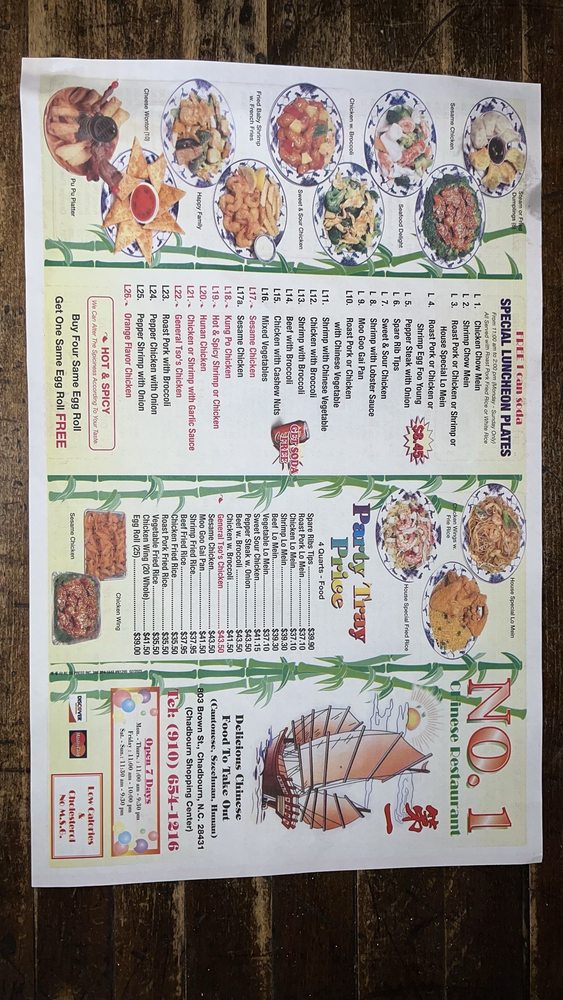 Steam or Fried
Dumplings (8)
Sesame Chicken
Seafood Delight
Chicken w. Broccoli
Sweet & Sour Chicken
Fried Baby Shrimp
w. French Fries
Happy Family
Cheese Wonton (10)
Pu Pu Platter
FREE 1 can soda
SPECIAL LUNCHEON PLATES
From 11:00 am to 3:00 pm (Monday - Sunday Only)
All Served with Roast Pork Fried Rice or White Rice
L 1. Chicken Chow Mein
L 2. Shrimp Chow Mein
L 3. Roast Pork or Chicken or Shrimp or
House Special Lo Mein
L 4. Roast Pork or Chicken or
Shrimp Egg Foo Young
L 5. Pepper Steak with Onion
L 6. Spare Rib Tips
L 7. Sweet & Sour Chicken
L 8. Shrimp with Lobster Sauce
L 9. Moo Goo Gai Pan
L10. Roast Pork or Chicken
with Chinese Vegetable
L11. Shrimp with Chinese Vegetable
L12. Chicken with Broccoli
L13. Shrimp with Broccoli
L14. Beef with Broccoli
L15. Chicken with Cashew Nuts
L16. Mixed Vegetables
L17. Sesame Chicken
L17a. Sesame Chicken
L18. Kung Po Chicken
L19. Hot & Spicy Shrimp or Chicken
L20. Hunan Chicken
L21. Chicken or Shrimp with Garlic Sauce
L22. General Tso's Chicken
L23. Roast Pork with Broccoli
L24. Pepper Chicken with Onion
L25. Pepper Shrimp with Onion
L26. Orange Flavor Chicken
$8.45
GET SODA
FREE
HOT & SPICY
We Can Alter The Spiciness According To Your Taste
Buy Four Same Egg Roll
Get One Same Egg Roll FREE
House Special Lo Mein
Chicken Wings w.
Fried Rice
House Special Fried Rice
Party Tray
Price
4 Quarts - Food
Spare Ribs Tips $39.90
Roast Pork Lo Mein $37.10
Chicken Lo Mein $37.10
Shrimp Lo Mein $39.30
Beef Lo Mein $39.30
Vegetable Lo Mein $37.10
Sweet Sour Chicken $41.15
Pepper Steak w. Onion $43.50
Beef w. Broccoli $43.50
Chicken w. Broccoli $41.50
General Tso's Chicken $43.50
Sesame Chicken $43.50
Moo Goo Gai Pan $41.50
Shrimp Fried Rice $37.95
Beef Fried Rice $37.95
Chicken Fried Rice $35.50
Roast Pork Fried Rice $35.50
Vegetable Fried Rice $35.50
Chicken Wing (20 Whole) $41.50
Egg Roll (25) $39.00
Sesame Chicken
Chicken Wing
NO. 1
Chinese Restaurant
第一
Delicious Chinese
Food To Take Out
(Cantonese, Szechuan, Hunan)
803 Brown St., Chadbourn, N.C. 28431
(Chadbourn Shopping Center)
Tel: (910) 654-1216
Open 7 Days
Mon. - Thurs.: 11:00 am - 9:30 pm
Friday: 11:00 am - 10:00 pm
Sat. - Sun.: 11:30 am - 9:30 pm
DISCOVER
MasterCard
Low Calories
&
Cholesterol
No M.S.G.